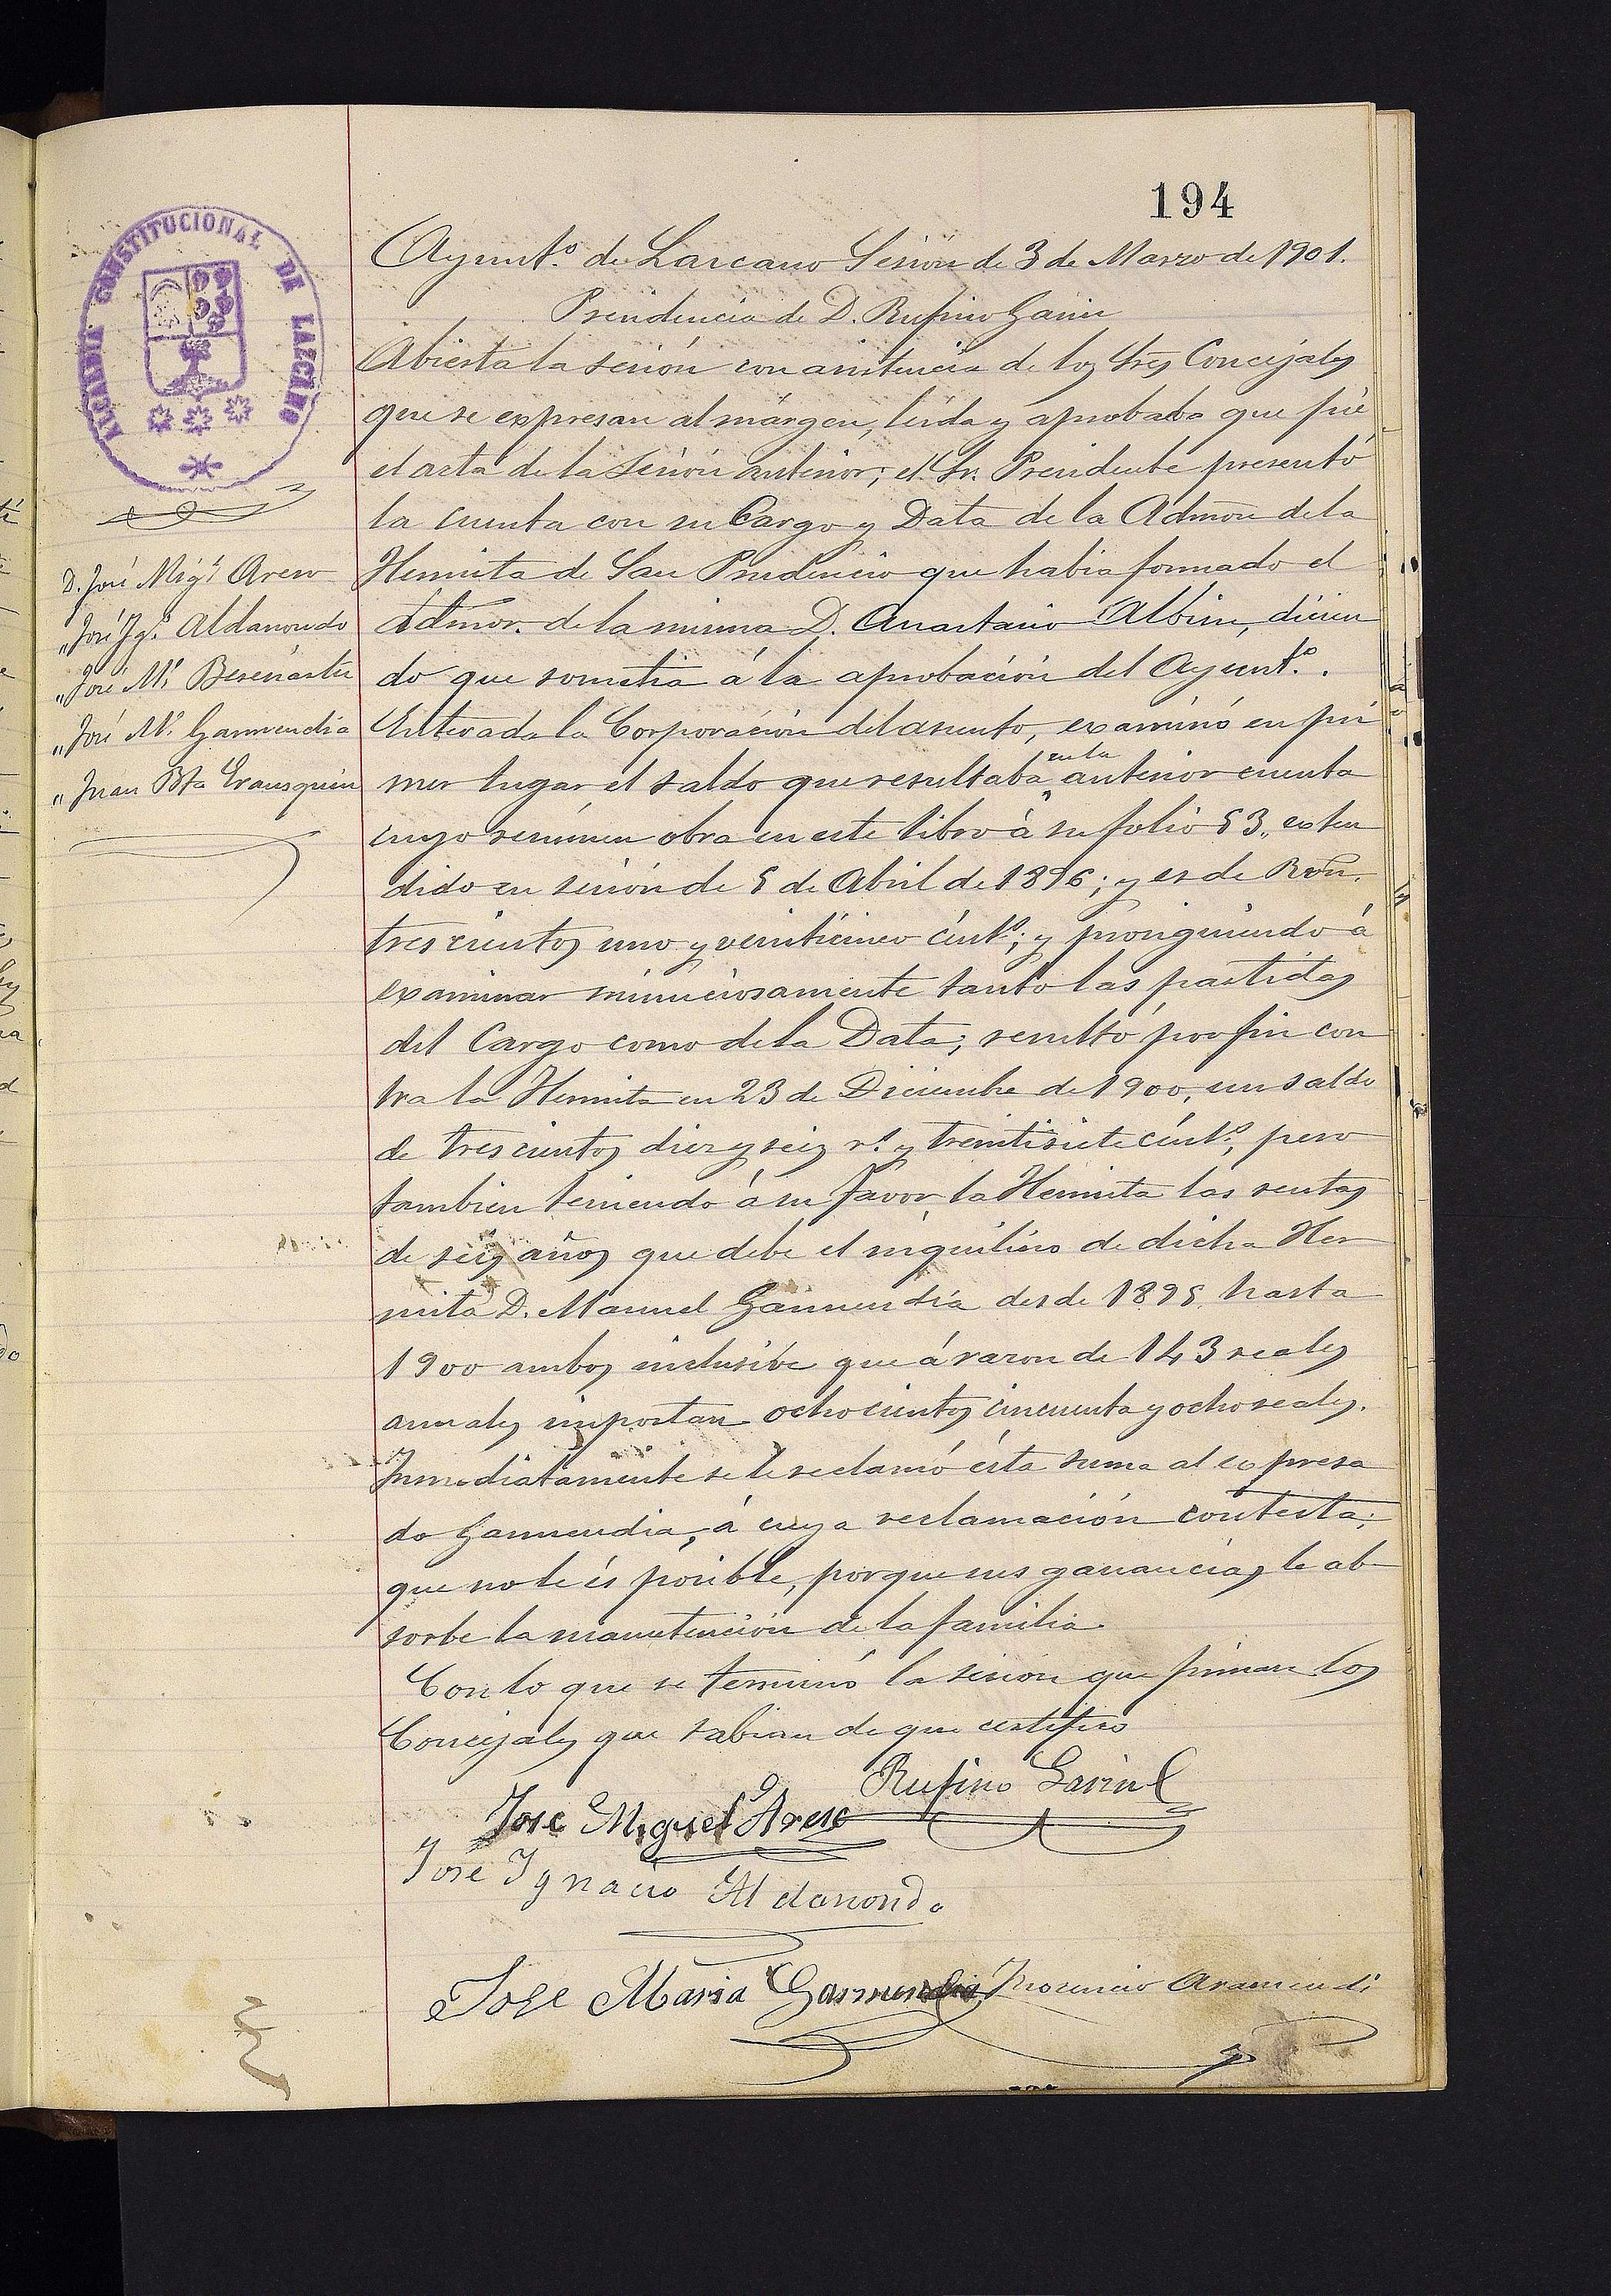 194
ALCALDIA CONSTITUCIONAL DE LAZCANO
Ayunt.º de Lazcano Sesión de 3 de Marzo de 1901.
Presidencia de D. Rufino Garin
Abierta la sesión con asistencia de los Sres Concejales
que se expresan al márgen, leida y aprobada que fué
el acta de la sesión anterior; el Sr. Presidente presentó
la cuenta con su Cargo y Data de la Admon de la
Hermita de San Prudencio que habia formado el
Admor. de la misma D. Anastasio Albisu, dicien
do que sometia á la aprobación del Ayunt.º.
Enterada la Corporación del asunto, examinó en pri
mer lugar el saldo que resultaba en la anterior cuenta
cuyo resúmen obra en este libro á su folio 53, exten
dido en sesión de 5 de Abril de 1896; y es de Rvn.
trescientos uno y veinticinco cént.s; y prosiguiendo á
examinar minuciosamente tanto las partidas
del Cargo como de la Data; resultó por fin con
tra la Hermita en 23 de Diciembre de 1900, un saldo
de trescientos diez y seis r.s y treintisiete cént.s, pero
tambien teniendo á su favor la Hermita las rentas
de seis años que debe el inquilino de dicha Her
mita D. Manuel Garmendia desde 1895 hasta
1900 ambos inclusibe que á razon de 143 reales
anuales importan ochocientos cincuenta y ocho reales.
Inmediatamente se le reclamó ésta suma al expresa
do Garmendia, á cuya reclamación contesta;
que no le és posible, porque sus ganancias le ab
sorbe la manutención de la familia.
Con lo que se terminó la sesión que firman los
Concejales que sabian de que certifico
D. José Mig.l Areso
" José Ig.º Aldanondo
" José M.ª Beseiartu
" José M.ª Garmendia
" Juan Bta Erausquin
Rufino Garin
Jose Miguel Areso
José Ygnacio Aldanondo
Jose Maria Garmendia
Aramendi